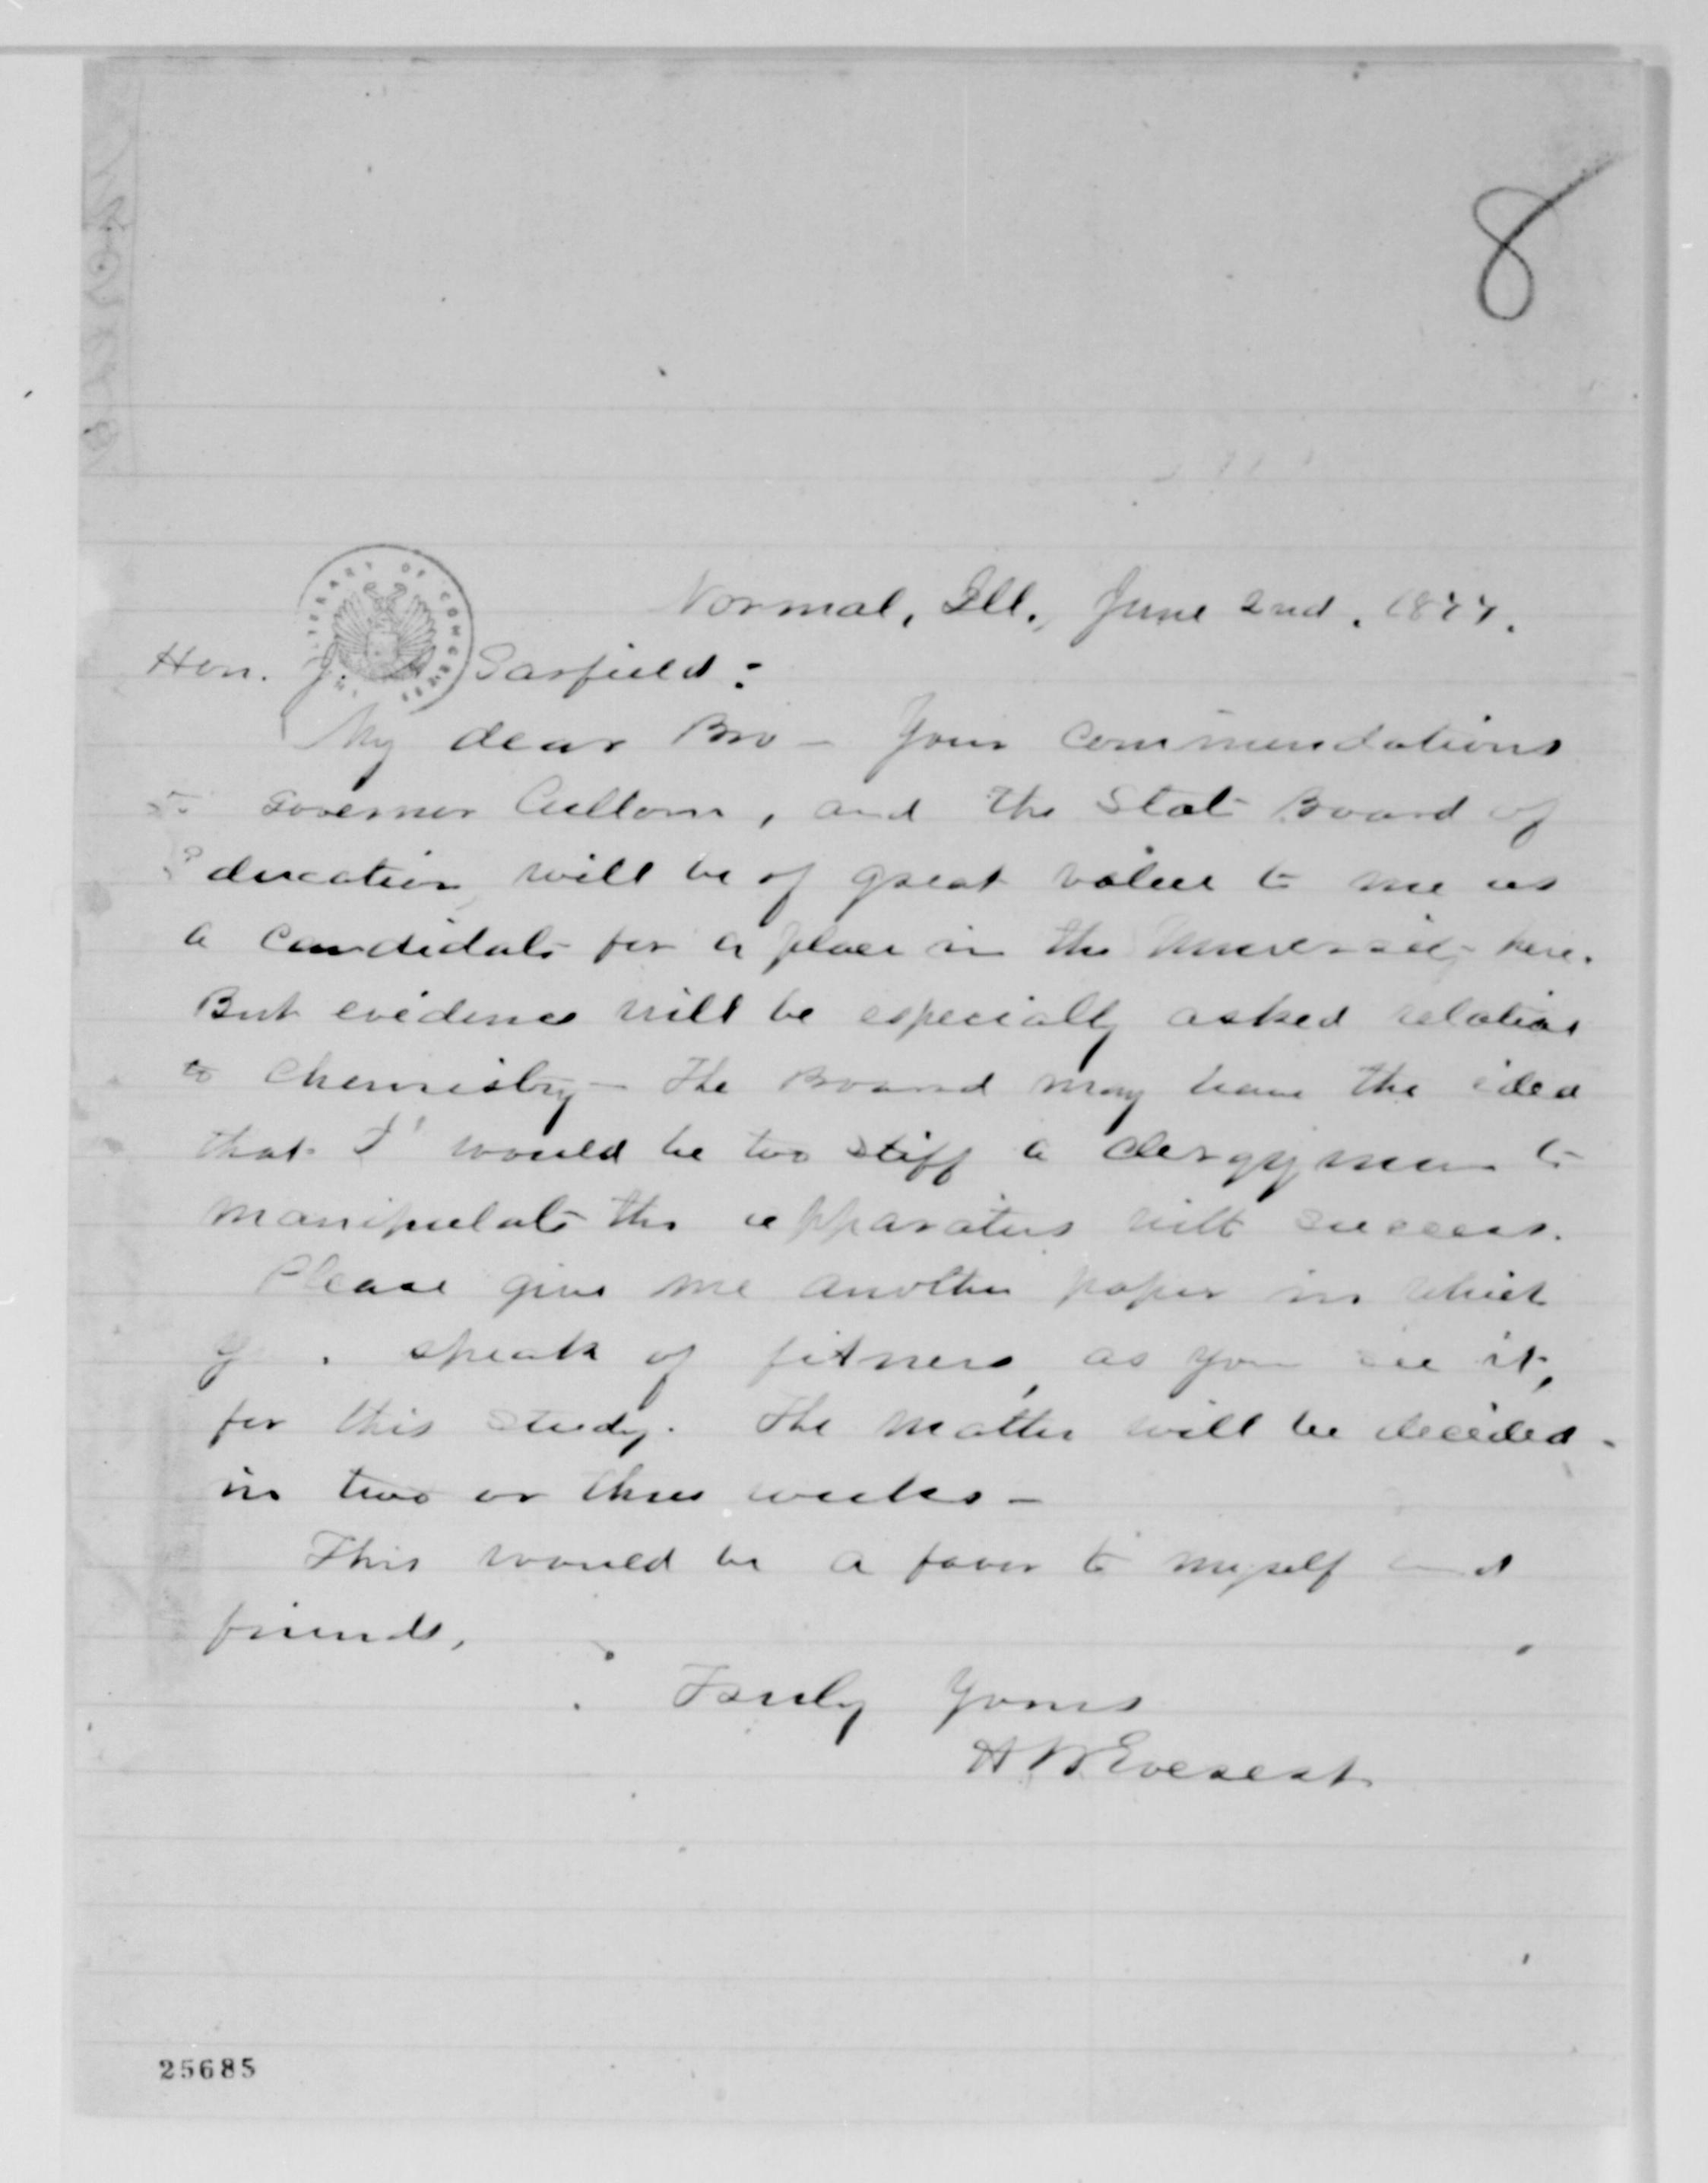 8
Normal, Ill., June 2nd, 1877.
LIBRARY OF CONGRESS
Hon. J. A. Garfield:
My dear Bro - Your commendations
to Governor Cullom, and the State Board of
Education will be of great value to me as
a candidate for a place in the University here.
But evidence will be especially asked relative
to Chemistry - The Board may have the idea
that I would be too stiff a clergyman to
manipulate the apparatus with success.
Please give me another paper in which
you speak of fitness, as you see it,
for this study. The matter will be decided
in two or three weeks -
This would be a favor to myself and
friends,
Truly Yours
H W Everest
25685